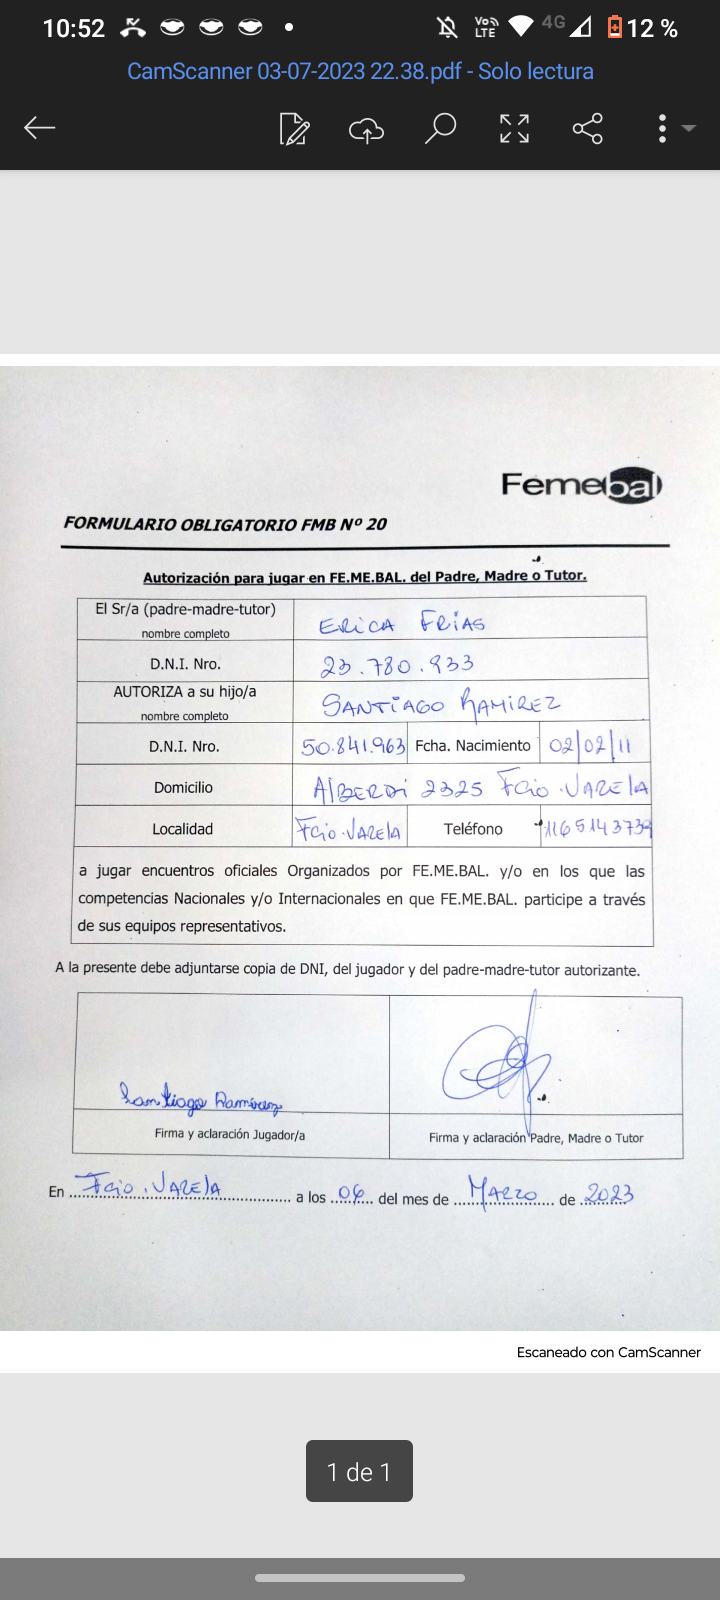 10:52 VoD LTE 4G 12 %
CamScanner 03-07-2023 22.38.pdf - Solo lectura
Femebal
FORMULARIO OBLIGATORIO FMB Nº 20
Autorización para jugar en FE.ME.BAL. del Padre, Madre o Tutor.
El Sr/a (padre-madre-tutor) nombre completo ERICA FRIAS
D.N.I. Nro. 23.780.933
AUTORIZA a su hijo/a nombre completo SANTIAGO RAMIREZ
D.N.I. Nro. 50.841.963 Fcha. Nacimiento 02/02/11
Domicilio AlBERDi 2325 Fcio.VARElA
Localidad Fcio.VARElA Teléfono 1165143739
a jugar encuentros oficiales Organizados por FE.ME.BAL. y/o en los que las
competencias Nacionales y/o Internacionales en que FE.ME.BAL. participe a través
de sus equipos representativos.
A la presente debe adjuntarse copia de DNI, del jugador y del padre-madre-tutor autorizante.
Santiago Ramirez
Firma y aclaración Jugador/a Firma y aclaración Padre, Madre o Tutor
En Fcio.VARElA a los 06 del mes de MARZO de 2023
Escaneado con CamScanner
1 de 1